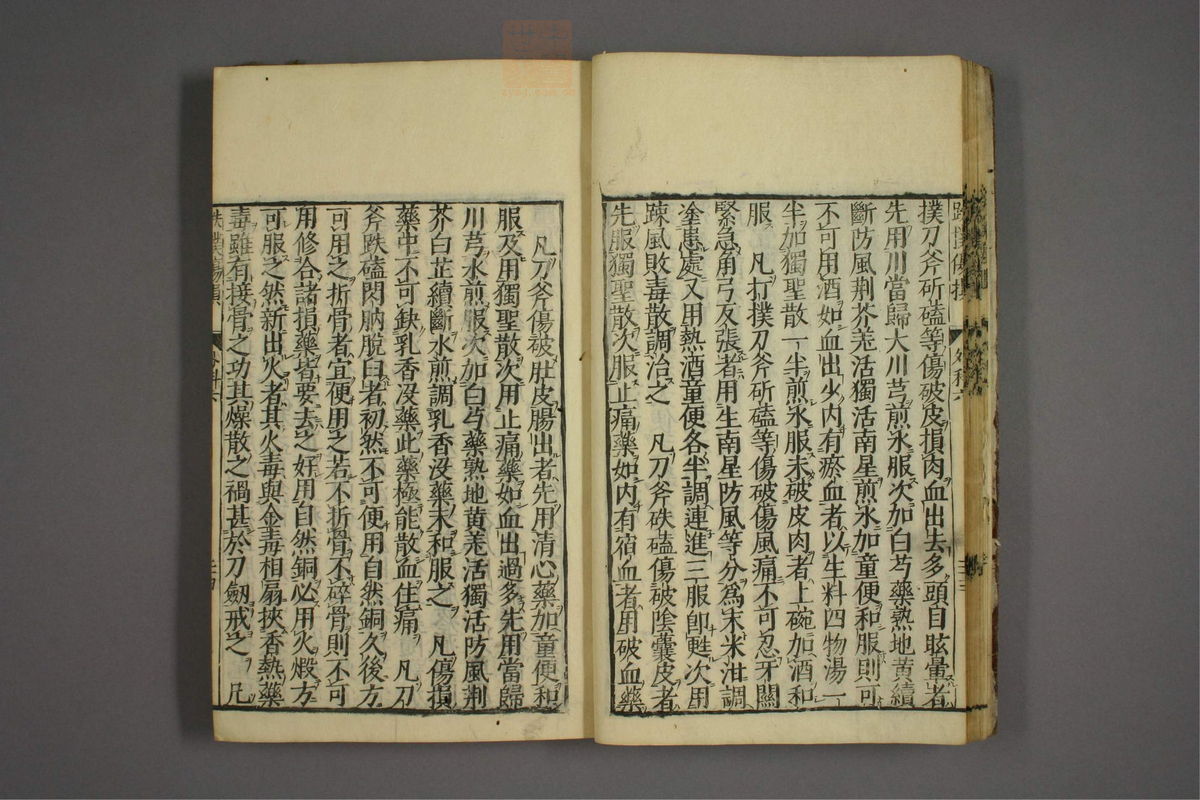 撲刀斧斫磕等傷破皮損肉血出去多頭目眩暈者
先用川當歸大川芎煎氷服次加白芍藥熟地黃續
斷防風荆芥羌活獨活南星煎氷加童便和服則可
不可用酒如血出少内有瘀血者以生料四物湯一
半加獨聖散一半煎氷服未破皮肉者上碗加酒和
服　凡打撲刀斧斫磕等傷破傷風痛不可忍牙關
緊急角弓反張者用生南星防風等分爲末米泔調
塗患處又用熱酒童便各半調連進三服卽甦次用
疎風敗毒散調治之　凡刀斧砍磕傷破陰囊皮者
先服獨聖散次服止痛藥如内有宿血者用破血藥
凡刀斧傷破肚皮腸出者先用清心藥加童便和
服及用獨聖散次用止痛藥如血出過多先用當歸
川芎水煎服次加白芍藥熟地黃羌活獨活防風荆
芥白芷續斷水煎調乳香沒藥末和服之　凡傷損
藥中不可缺乳香沒藥此藥極能散血住痛　凡刀
斧跌磕閃肭脫臼者初然不可便用自然銅久後方
可用之折骨者宜便用之若不折骨不碎骨則不可
用修合諸損藥皆要去之好用自然銅必用火煅方
可服之然新出火者其火毒與金毒相扇挾香熱藥
毒雖有接骨之功其燥散之禍甚於刀劒戒之　凡
跌撲傷損